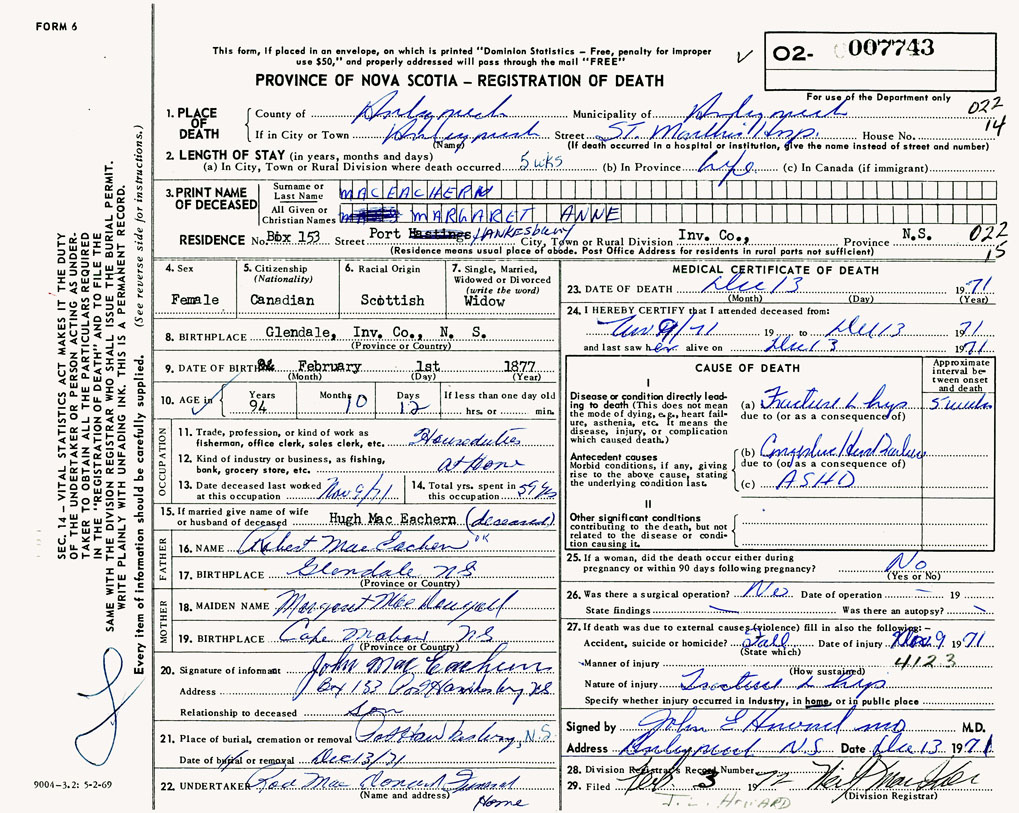 FORM 6
This form, if placed in an envelope, on which is printed "Dominion Statistics – Free, penalty for improper
use $50," and properly addressed will pass through the mail "FREE"
O2- 007743
For use of the Department only
PROVINCE OF NOVA SCOTIA – REGISTRATION OF DEATH
022
14
1. PLACE OF DEATH
County of Antigonish Municipality of Antigonish
If in City or Town Antigonish Street St. Martha's Hosp. House No.
(Name) (If death occurred in a hospital or institution, give the name instead of street and number)
2. LENGTH OF STAY (in years, months and days)
(a) In City, Town or Rural Division where death occurred 5 wks (b) In Province life (c) In Canada (if immigrant)
3. PRINT NAME OF DECEASED
Surname or Last Name MACEACHERN
All Given or Christian Names MARGARET ANNE
RESIDENCE No. Box 153 Street Port Hastings HAWKESBURY City, Town or Rural Division Inv. Co., Province N.S.
(Residence means usual place of abode. Post Office Address for residents in rural parts not sufficient)
022
15
4. Sex
Female
5. Citizenship
(Nationality)
Canadian
6. Racial Origin
Scottish
7. Single, Married,
Widowed or Divorced
(write the word)
Widow
8. BIRTHPLACE Glendale, Inv. Co., N. S.
(Province or Country)
9. DATE OF BIRTH February 1st 1877
(Month) (Day) (Year)
10. AGE in Years 94 Months 10 Days 12 If less than one day old
hrs. or min.
OCCUPATION
11. Trade, profession, or kind of work as
fisherman, office clerk, sales clerk, etc. Houseduties
12. Kind of industry or business, as fishing,
bank, grocery store, etc. at Home
13. Date deceased last worked
at this occupation Nov 9/71
14. Total yrs. spent in
this occupation 59 yrs
15. If married give name of wife
or husband of deceased Hugh Mac Eachern (deceased)
FATHER
16. NAME Robert Mac Eachern OK
17. BIRTHPLACE Glendale NS
(Province or Country)
MOTHER
18. MAIDEN NAME Margaret MacDougall
19. BIRTHPLACE Cape Mabou NS
(Province or Country)
20. Signature of informant John MacEachern
Address Box 153 Port Hawkesbury NS
Relationship to deceased Son
21. Place of burial, cremation or removal Port Hawkesbury, N.S.
Date of burial or removal Dec 13/71
22. UNDERTAKER Funeral
(Name and address) Home
MEDICAL CERTIFICATE OF DEATH
23. DATE OF DEATH Dec 13 1971
(Month) (Day) (Year)
24. I HEREBY CERTIFY that I attended deceased from:
Nov 9/71 19 to Dec 13 71
and last saw her alive on Dec 13 1971
CAUSE OF DEATH
Approximate
interval be-
tween onset
and death
I
Disease or condition directly lead-
ing to death (This does not mean
the mode of dying, e.g., heart fail-
ure, asthenia, etc. It means the
disease, injury, or complication
which caused death.)
(a) Fracture L hip 5 weeks
due to (or as a consequence of)
Antecedent causes
Morbid conditions, if any, giving
rise to the above cause, stating
the underlying condition last.
(b) Congestive Heart Failure
due to (or as a consequence of)
(c) ASHD
II
Other significant conditions
contributing to the death, but not
related to the disease or condi-
tion causing it.
25. If a woman, did the death occur either during
pregnancy or within 90 days following pregnancy? No
(Yes or No)
26. Was there a surgical operation? Date of operation – 19
State findings — Was there an autopsy?
27. If death was due to external causes (violence) fill in also the following:–
Accident, suicide or homicide? Fall Date of injury Nov. 9 1971
(State which)
Manner of injury 4123
(How sustained)
Nature of injury Fracture L hip
Specify whether injury occurred in Industry, in home, or in public place
Signed by M.D.
Address Antigonish N.S. Date Dec 13 1971
28. Division Registrar's Record Number
29. Filed 3 1972
(Division Registrar)
SEC. 14 – VITAL STATISTICS ACT MAKES IT THE DUTY
OF THE UNDERTAKER OR PERSON ACTING AS UNDER-
TAKER TO OBTAIN ALL THE PARTICULARS REQUIRED
IN THE "REGISTRATION OF DEATH" AND TO FILE THE
SAME WITH THE DIVISION REGISTRAR WHO SHALL ISSUE THE BURIAL PERMIT.
WRITE PLAINLY WITH UNFADING INK. THIS IS A PERMANENT RECORD.
Every item of information should be carefully supplied. (See reverse side for instructions.)
9004-3.2: 5-2-69